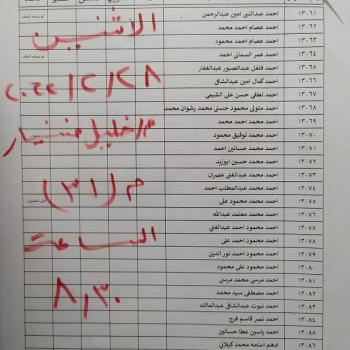 ١٣٠٦١ احمد عبدالنبي امين عبدالرحمن
١٣٠٦٢ احمد عصام احمد محمد
١٣٠٦٣ احمد عصام احمد محمود
١٣٠٦٤ احمد عمر السمانى احمد
١٣٠٦٥ احمد فلفل عبدالصبور عبدالغفار
١٣٠٦٦ احمد كمال امين عبدالشافى
١٣٠٦٧ احمد لطفى حسن على الشيمى
١٣٠٦٨ احمد متولى محمود حسنى محمد رشوان محمد
١٣٠٦٩ احمد محمد احمد محمد
١٣٠٧٠ احمد محمد توفيق محمود
١٣٠٧١ احمد محمد حسانين احمد
١٣٠٧٢ احمد محمد حسين ابوزيد
١٣٠٧٣ احمد محمد عبدالغنى عصران
١٣٠٧٤ احمد محمد عبدالمطلب احمد
١٣٠٧٥ احمد محمد محمود على
١٣٠٧٦ احمد محمد معتمد عبدالله
١٣٠٧٧ احمد محمود احمد عبدالغنى
١٣٠٧٨ احمد محمود احمد على
١٣٠٧٩ احمد محمود احمد نور الدين
١٣٠٨٠ احمد محمود على محمود
١٣٠٨١ احمد مرسى محمد مرسى
١٣٠٨٢ احمد مصطفى سيد محمد
١٣٠٨٣ احمد نبوت عبدالشافى عبدالمالك
١٣٠٨٤ احمد نصر قاسم فرج
١٣٠٨٥ احمد ياسين عطا حسانين
١٣٠٨٦ ادهم اسامه محمد كيلانى
الاثنين
٢٠٢٢/٢/٢٨
م/خليل
م (٣١)
الساعة
٨,٣٠